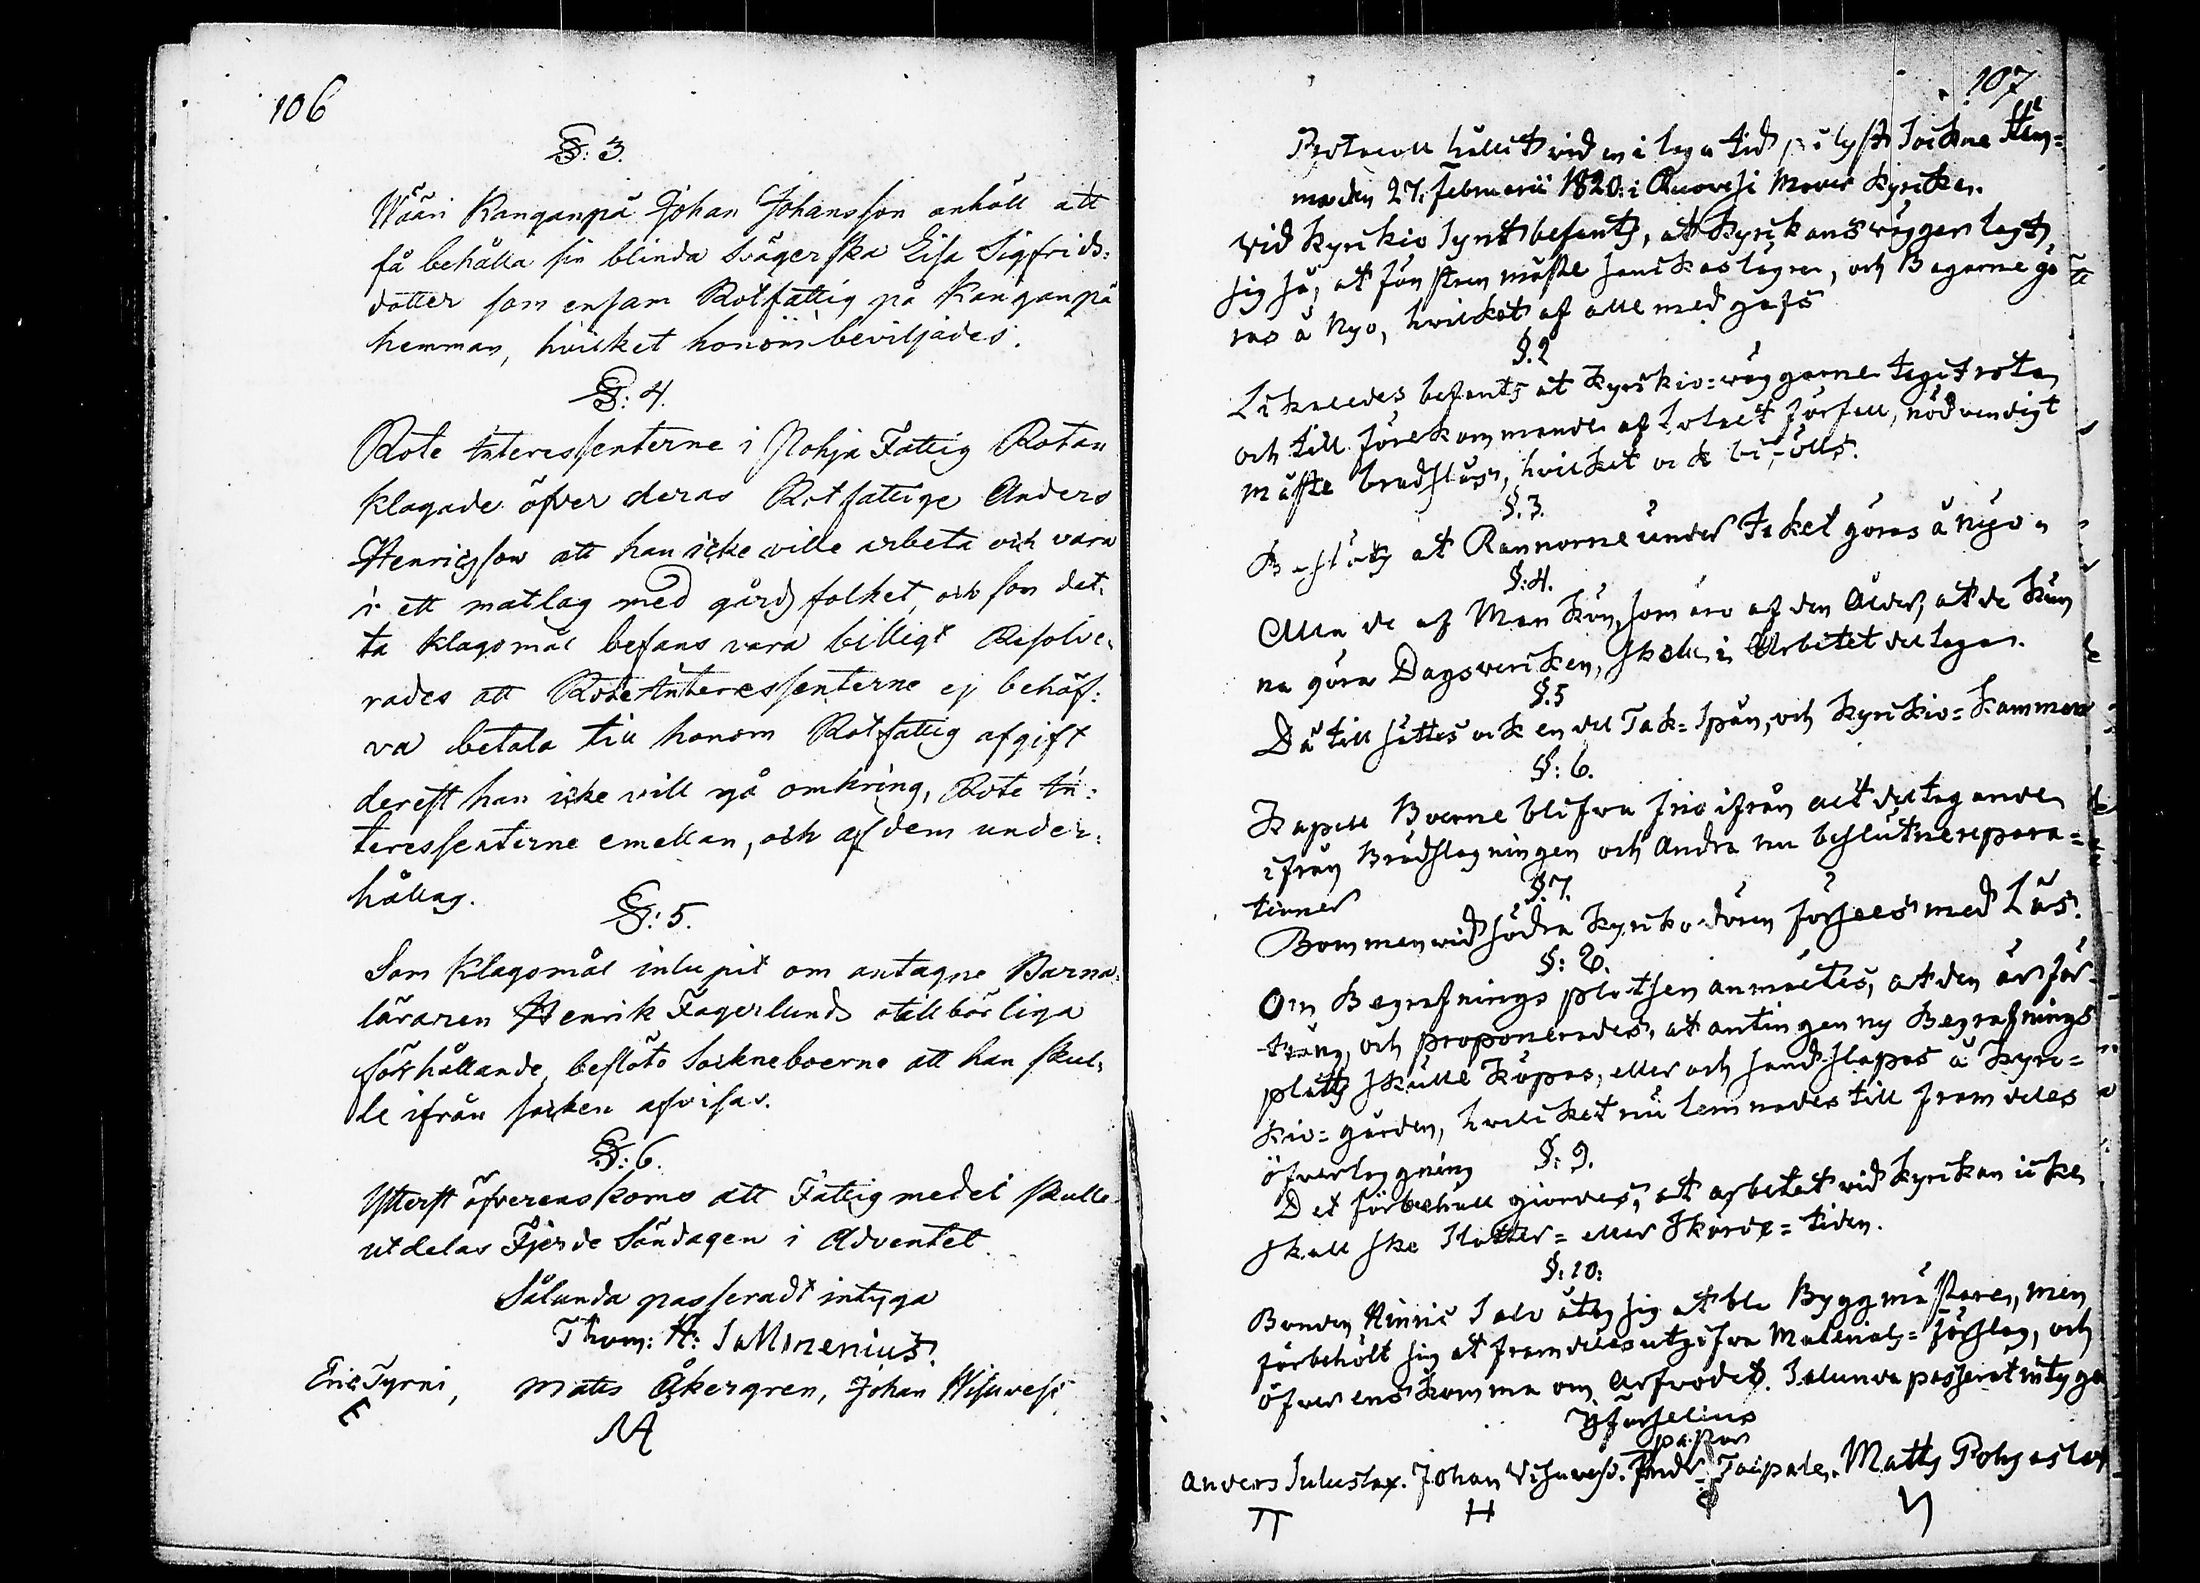 106
§: 3.
Wääri Kanganpä Johan Johansson anhöll att
få behålla sin blinda Svägerska Lisa Sigfrids:
dotter som ensam Rotfattig på Kanganpä
hemman, hvilket honom beviljades.
§: 4.
Rote Interessenterne i Pohja Fattig Rotan
klagade öfver deras Rotfattige Anders
Henricsson att han icke ville arbeta och vara
i ett matlag med gårdsfolket, och som det:
ta klagomål befans vara billigt Resolve:
rades att Rote Interessenterne ej behöf:
va betala till honom Rotfattig afgift
derest han icke vill gå omkring, Rote In:
teressenterne emellan, och af dem under:
hållas.
§: 5.
Som klagomål inlupit om antagne Barna:
läraren Henrik Fagerlunds otillbörliga
förhållande, beslöto Sockneboerne att han skul:
le ifrån socken afvisas.
§: 6.
Ytterst öfverenskoms att Fattigmedel skulle
utdelas Fjerde Söndagen i Adventet.
Sålunda passeradt intyga
Thom: H: Salmenius.
Eric Tyrni, Matts Åkergren, Johan Wisuvesi
E
107
Protocoll hållit vid en i laga tid pålyst Sockne Stäm=
ma den 27. Februarii 1820: i Ruovesi Moder Kyrcka.
Vid Kyrkio Synt befants, at Kyrckans väggar lagt
sig så, at Fönstren måste sänckas lägre, och Bagarne gö
ras å Nyo, hvilcket af alle med gafs
§. 2
Likaledes befants at Kyrkio=väggarne tagit röta
och till förekommande af totalt förfall, nödvendigt
måste brädslås, hvilcket ock biföls.
§. 3.
Beslöts at Rännorne under Taket göras å nyo
§: 4.
Alla de af Man Kön, som äro af den Ålder, at de kun
na göra Dagsvercken, skola i Arbetet deltaga.
§. 5
Då tillsattes ock en del Tak=Spån, och Kyrkio=kammare
§: 6.
Kapell Boerne blifva frie ifrån alt deltagande
ifrån Brädslagningen och Andra nu beslutne repara=
tioner
§. 7.
Bommen vid södra Kyrko dören förses med Lås.
§: 8.
Om Begrafnings platsen anmältes, at den är för
trång, och proponerades, at antingen ny Begrafnings
plats skulle köpas, eller och sand släpas å Kyrc=
kio=gården, hvilcket nu lemnades till framdeles
öfverläggning
§: 9.
Det förbehåll giordes, at arbetet vid Kyrckan icke
skall ske Slotter= eller Skörde=tiden.
§: 10:
Bonden Hinric Salo åtog sig at bli Byggmästare, men
förbehölt sig at framdeles utgifva Materials=förslag, och
öfverenskomma om Arfvodet. Sålunda passerat intyga
Forselius
pastor
Anders Suluslax. Johan Visuvesi. Andr. Taipale. Matts Pohjaslax
H